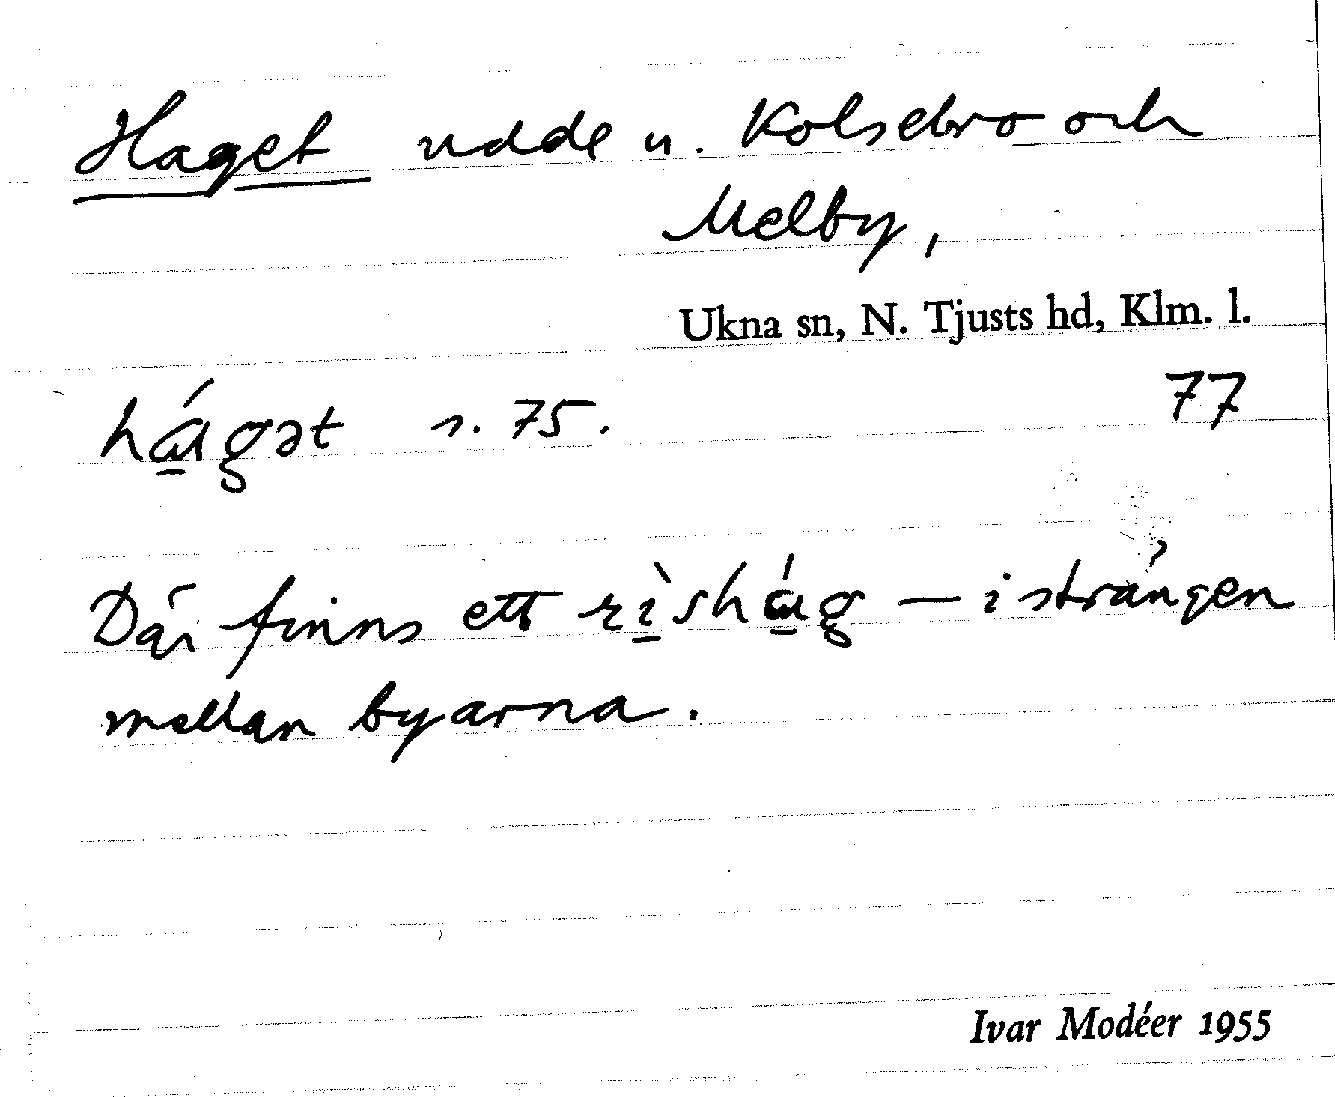 Haget udde u. Kolsebro och
Melby,
Ukna sn, N. Tjusts hd, Klm. l.
hágət s. 75. 77
Där finns ett rìshág – i strängen
mellan byarna.
Ivar Modéer 1955